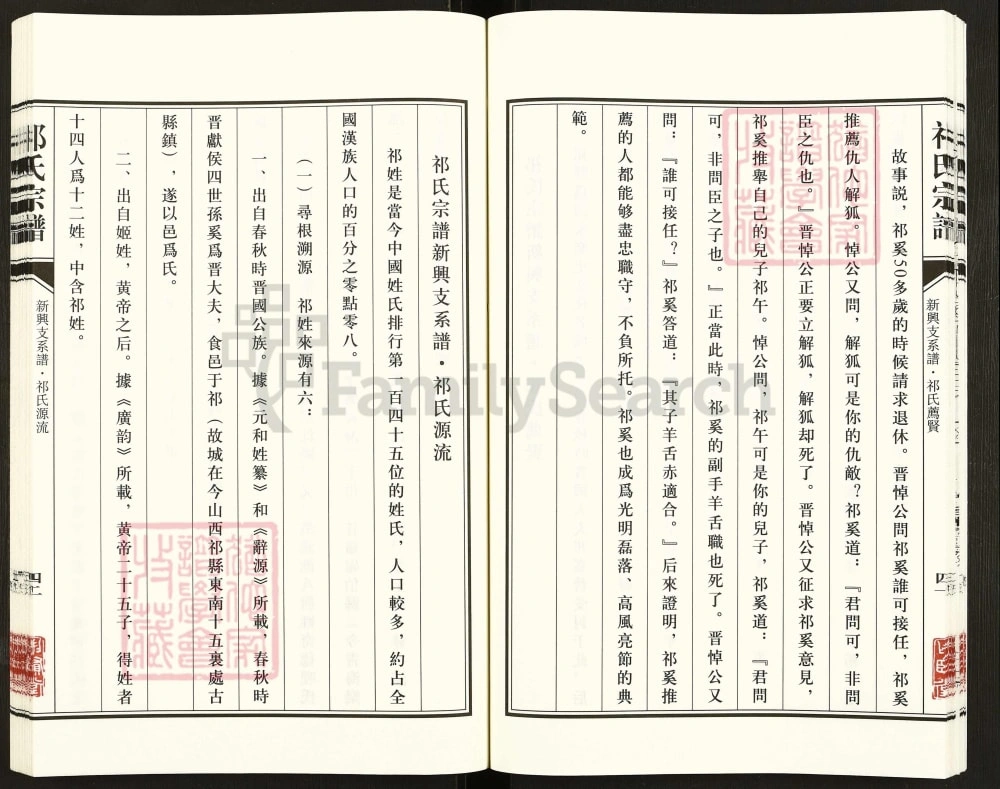 祁氏宗譜
新興支系譜·祁氏薦賢
四一
故事説，祁奚50多歲的時候請求退休。晋悼公問祁奚誰可接任，祁奚
推薦仇人解狐。悼公又問，解狐可是你的仇敵？祁奚道：『君問可，非問
臣之仇也。』晋悼公正要立解狐，解狐却死了。晋悼公又征求祁奚意見，
祁奚推舉自己的兒子祁午。悼公問，祁午可是你的兒子，祁奚道：『君問
可，非問臣之子也。』正當此時，祁奚的副手羊舌職也死了。晋悼公又
問：『誰可接任？』祁奚答道：『其子羊舌赤適合。』后來證明，祁奚推
薦的人都能够盡忠職守，不負所托。祁奚也成爲光明磊落、高風亮節的典
範。
祁氏宗譜新興支系譜·祁氏源流
祁姓是當今中國姓氏排行第一百四十五位的姓氏，人口較多，約占全
國漢族人口的百分之零點零八。
（一）尋根溯源　祁姓來源有六：
一、出自春秋時晋國公族。據《元和姓纂》和《辭源》所載，春秋時
晋獻侯四世孫奚爲晋大夫，食邑于祁（故城在今山西祁縣東南十五裏處古
縣鎮），遂以邑爲氏。
二、出自姬姓，黄帝之后。據《廣韵》所載，黄帝二十五子，得姓者
十四人爲十二姓，中含祁姓。
祁氏宗譜
新興支系譜·祁氏源流
四二
FamilySearch